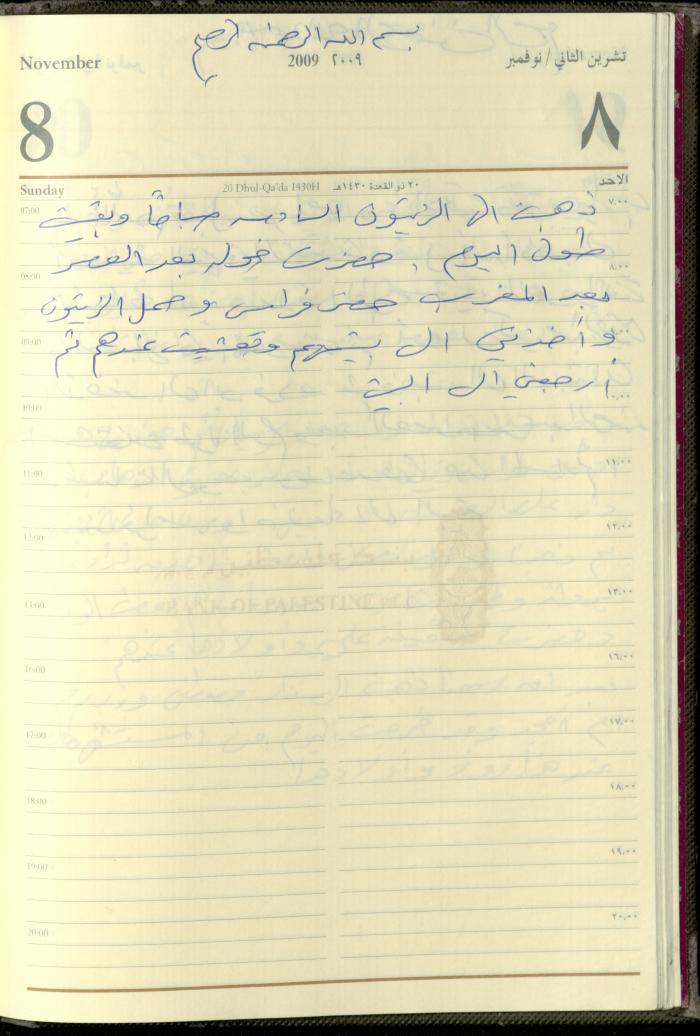 بسم الله الرحمن الرحيم
November
2009 ٢٠٠٩
تشرين الثاني / نوفمبر
8
٨
Sunday
20 Dhul-Qa'da 1430H ٢٠ ذو القعدة ١٤٣٠هـ
الأحد
07:00 ٧,٠٠
ذهبت الى الزيتون السادسه صباحاً وبقيت
طول اليوم . حضرت خوله بعد العصر
08:00 ٨,٠٠
بعد المغرب حضر فراس وحمل الزيتون
09:00
وأخذني الى بيتهم وتعشيت عندهم ثم
أرجعني الى البيت
10:00 ١٠,٠٠
11:00 ١١,٠٠
12:00 ١٢,٠٠
BANK OF PALESTINE
13:00 ١٣,٠٠
16:00 ١٦,٠٠
17:00 ١٧,٠٠
18:00 ١٨,٠٠
19:00 ١٩,٠٠
20:00 ٢٠,٠٠